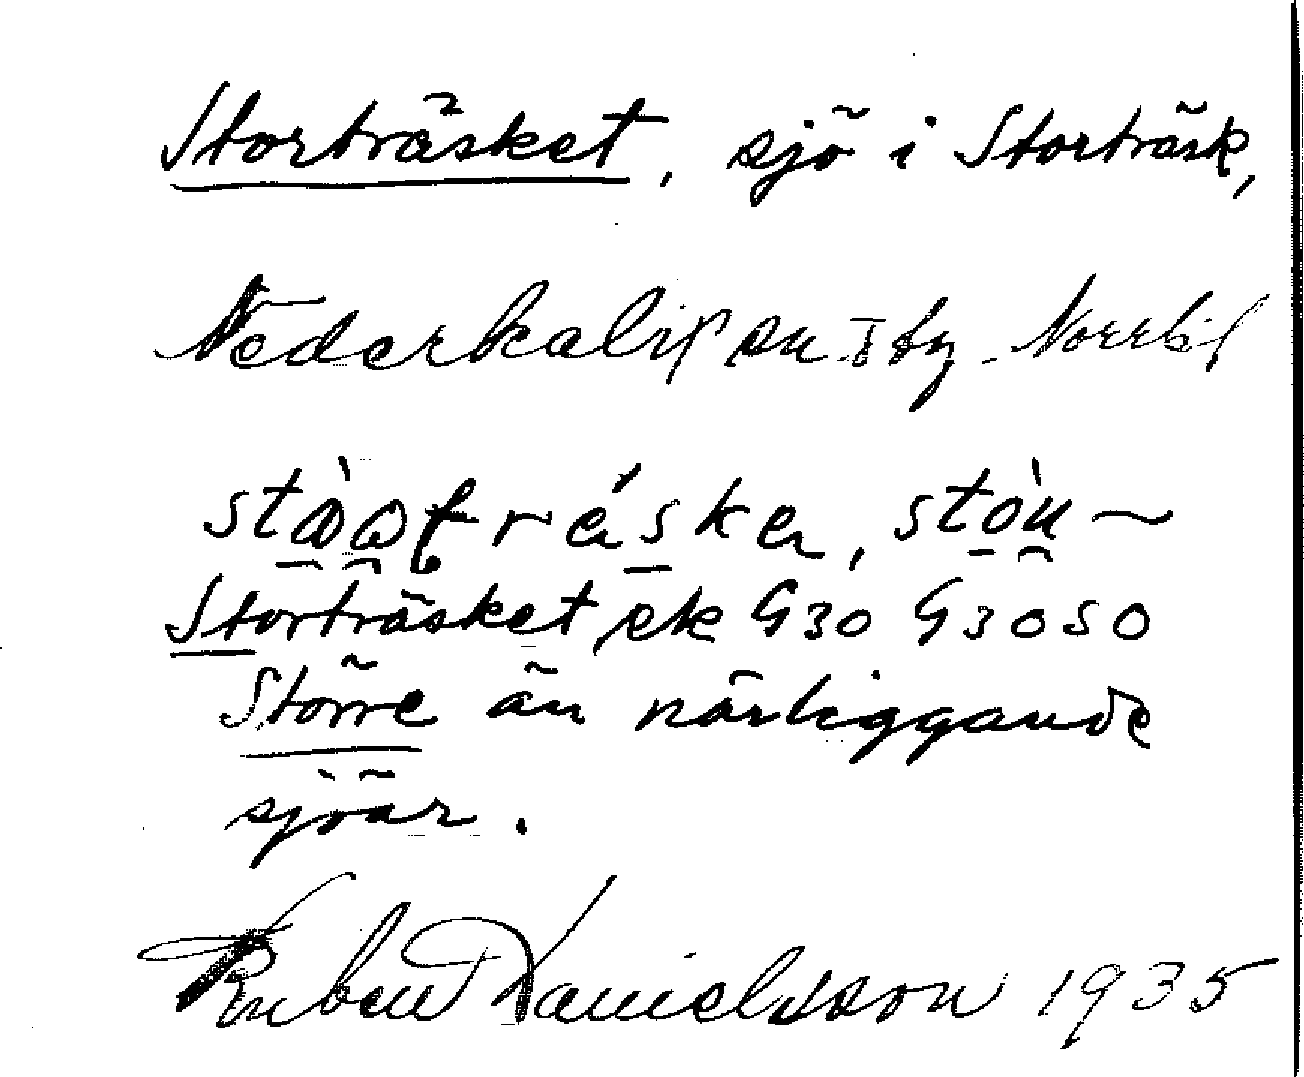 Storträsket, sjö i Storträsk,
Nederkalix sn. Norrb. l
Storträsket, ek G30 G3050
Större än närliggande
sjöar.
Ruben Danielsson 1935